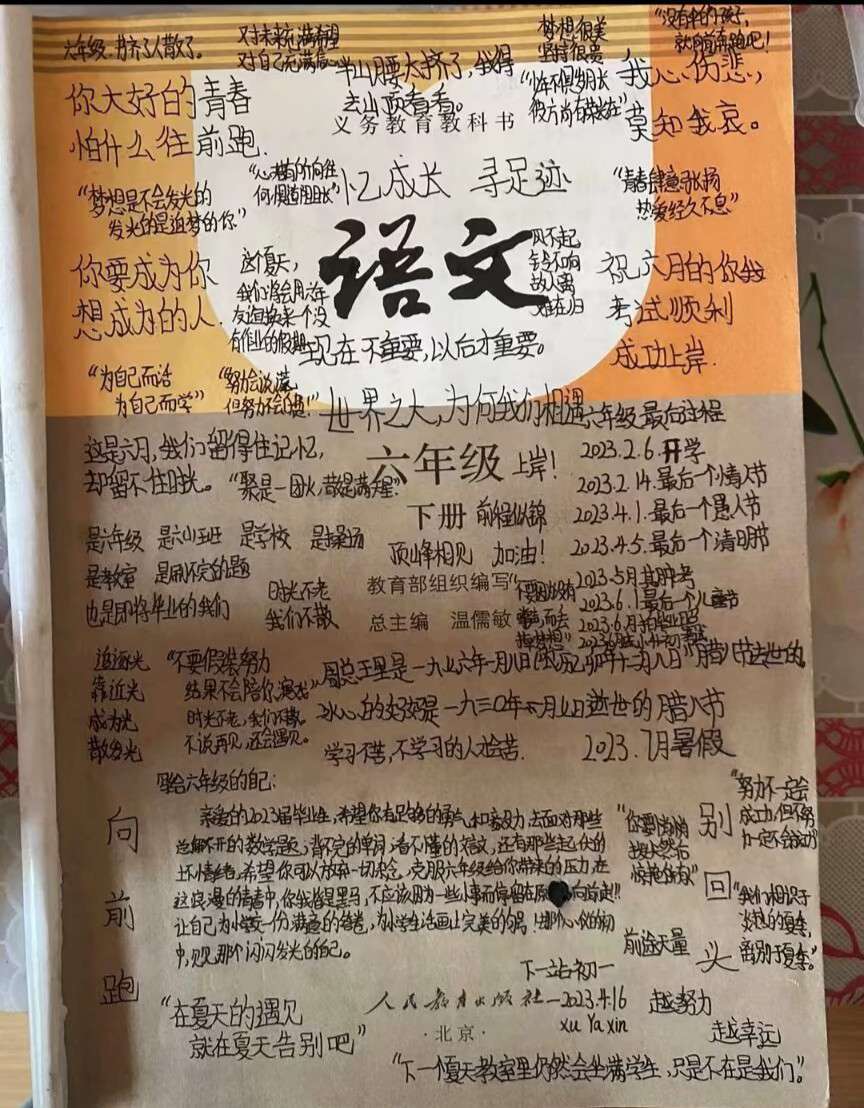 六年级,挤了人散了。
对未来充满希望
对自己充满信心
半山腰太挤了,我得
去山顶看看。
梦想很美
坚持很贵
"没有伞的孩子,
就向前奔跑吧!
"少年不惧岁月长
彼方尚有荣光在"
我心伤悲,
莫知我哀。
你大好的青春
怕什么往前跑.
义务教育教科书
"心有所向往
何惧道阻长"
忆成长 寻足迹
"梦想是不会发光的
发光的是追梦的你"
"青春肆意张扬
热爱经久不息"
语文
你要成为你
想成为的人.
这个夏天,
我们将会用六年
友谊换来一个没
有作业的假期
风不起
铃不响
故人离
难在归
祝六月的你我
考试顺利
成功上岸.
现在不重要,以后才重要。
"为自己而活
为自己而学"
但努力不会
世界之大,为何我们相遇
六年级最后过程
这是六月,我们留得住记忆,
却留不住时光。
"聚是一团火,散是满天星"
六年级 上岸!
下册 前程似锦
顶峰相见 加油!
2023.2.6.开学
2023.2.14.最后一个情人节
2023.4.1.最后一个愚人节
2023.4.5.最后一个清明节
2023.5月其中考
2023.6.1最后一个儿童节
2023.6月拍毕业照
是六年级 是六小五班 是学校 是操场
是教室 是刷不完的题
也是即将毕业的我们
时光不老
我们不散
教育部组织编写
总主编 温儒敏
追逐光
靠近光
成为光
散发光
"不要假装努力
结果不会陪你演戏"
时光不老,我们不散。
不说再见,还会遇见。
周总王里是一九七六年一月八日
"腊八节去世的。
冰心的奶奶是一九三〇年一月七日逝世的腊八节
学习不苦,不学习的人才会苦.
2023.7月暑假
写给六年级的自己:
亲爱的2023届毕业生,希望你有足够的勇气和毅力,去面对那些
边解不开的数学题,背不完的单词,看不懂的短文,还有那些起伏的
坏情绪。希望你可以放弃一切杂念,克服六年级给你带来的压力,在
这浪漫的青春中,你我皆是黑马,不应该因为一些小事而停留在原 向前走!!
让自己为小学交一份满意的答卷,为小学生活画上完美的句号!去那个心仪的初
中,见见那个闪闪发光的自己。
向前跑
"你要悄悄
拔尖然后
惊艳所有"
前途无量
别回头
"努力不一定会
成功,但不努
力一定不会成功"
"我们相识于
炎热的夏季,
离别于夏季。"
下一站初一
人民教育出版社
—2023.4.16
xu Ya xin
·北京·
越努力
越幸运
"在夏天的遇见
就在夏天告别吧"
"下一个夏天教室里仍然会坐满学生,只是不在是我们"。